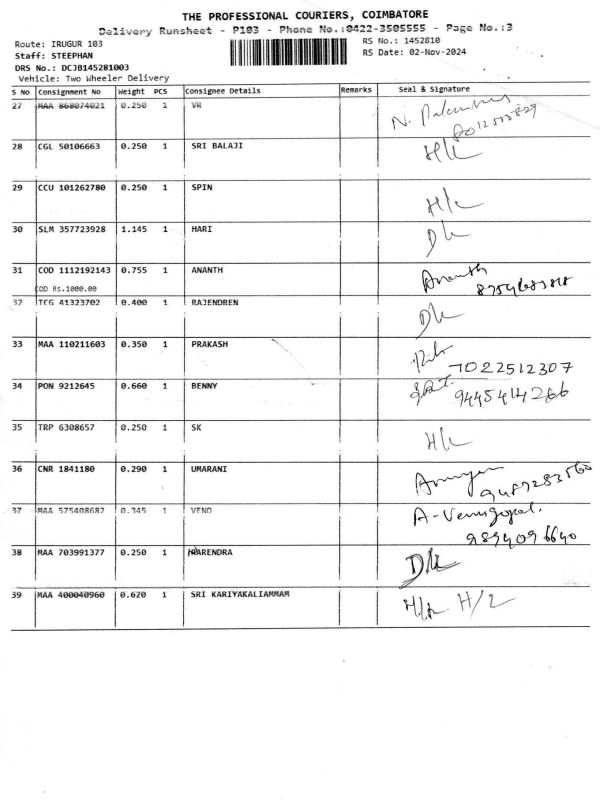 THE PROFESSIONAL COURIERS, COIMBATORE
Delivery Runsheet - P103 - Phone No.:0422-3505555 - Page No.:3
Route: IRUGUR 103
RS No.: 1452810
Staff: STEEPHAN
RS Date: 02-Nov-2024
DRS No.: DCJB145281003
Vehicle: Two Wheeler Delivery
S No Consignment No Weight PCS Consignee Details Remarks Seal & Signature
27 MAA 868074021 0.250 1 VR
28 CGL 50106663 0.250 1 SRI BALAJI H/L
29 CCU 101262780 0.250 1 SPIN H/L
30 SLM 357723928 1.145 1 HARI DL
31 COD 1112192143 0.755 1 ANANTH Ananth
COD Rs.1000.00
37 TCG 41323702 0.400 1 RAJENDREN DL
33 MAA 110211603 0.350 1 PRAKASH
7022512307
34 PON 9212645 0.660 1 BENNY
9445414266
35 TRP 6308657 0.250 1 SK H/L
36 CNR 1841180 0.290 1 UMARANI
9487283560
37 MAA 575408682 0.345 1 VENO A-Venugopal.
9894096640
38 MAA 703991377 0.250 1 NARENDRA DL
39 MAA 400040960 0.620 1 SRI KARIYAKALIAMMAM H/L H/L